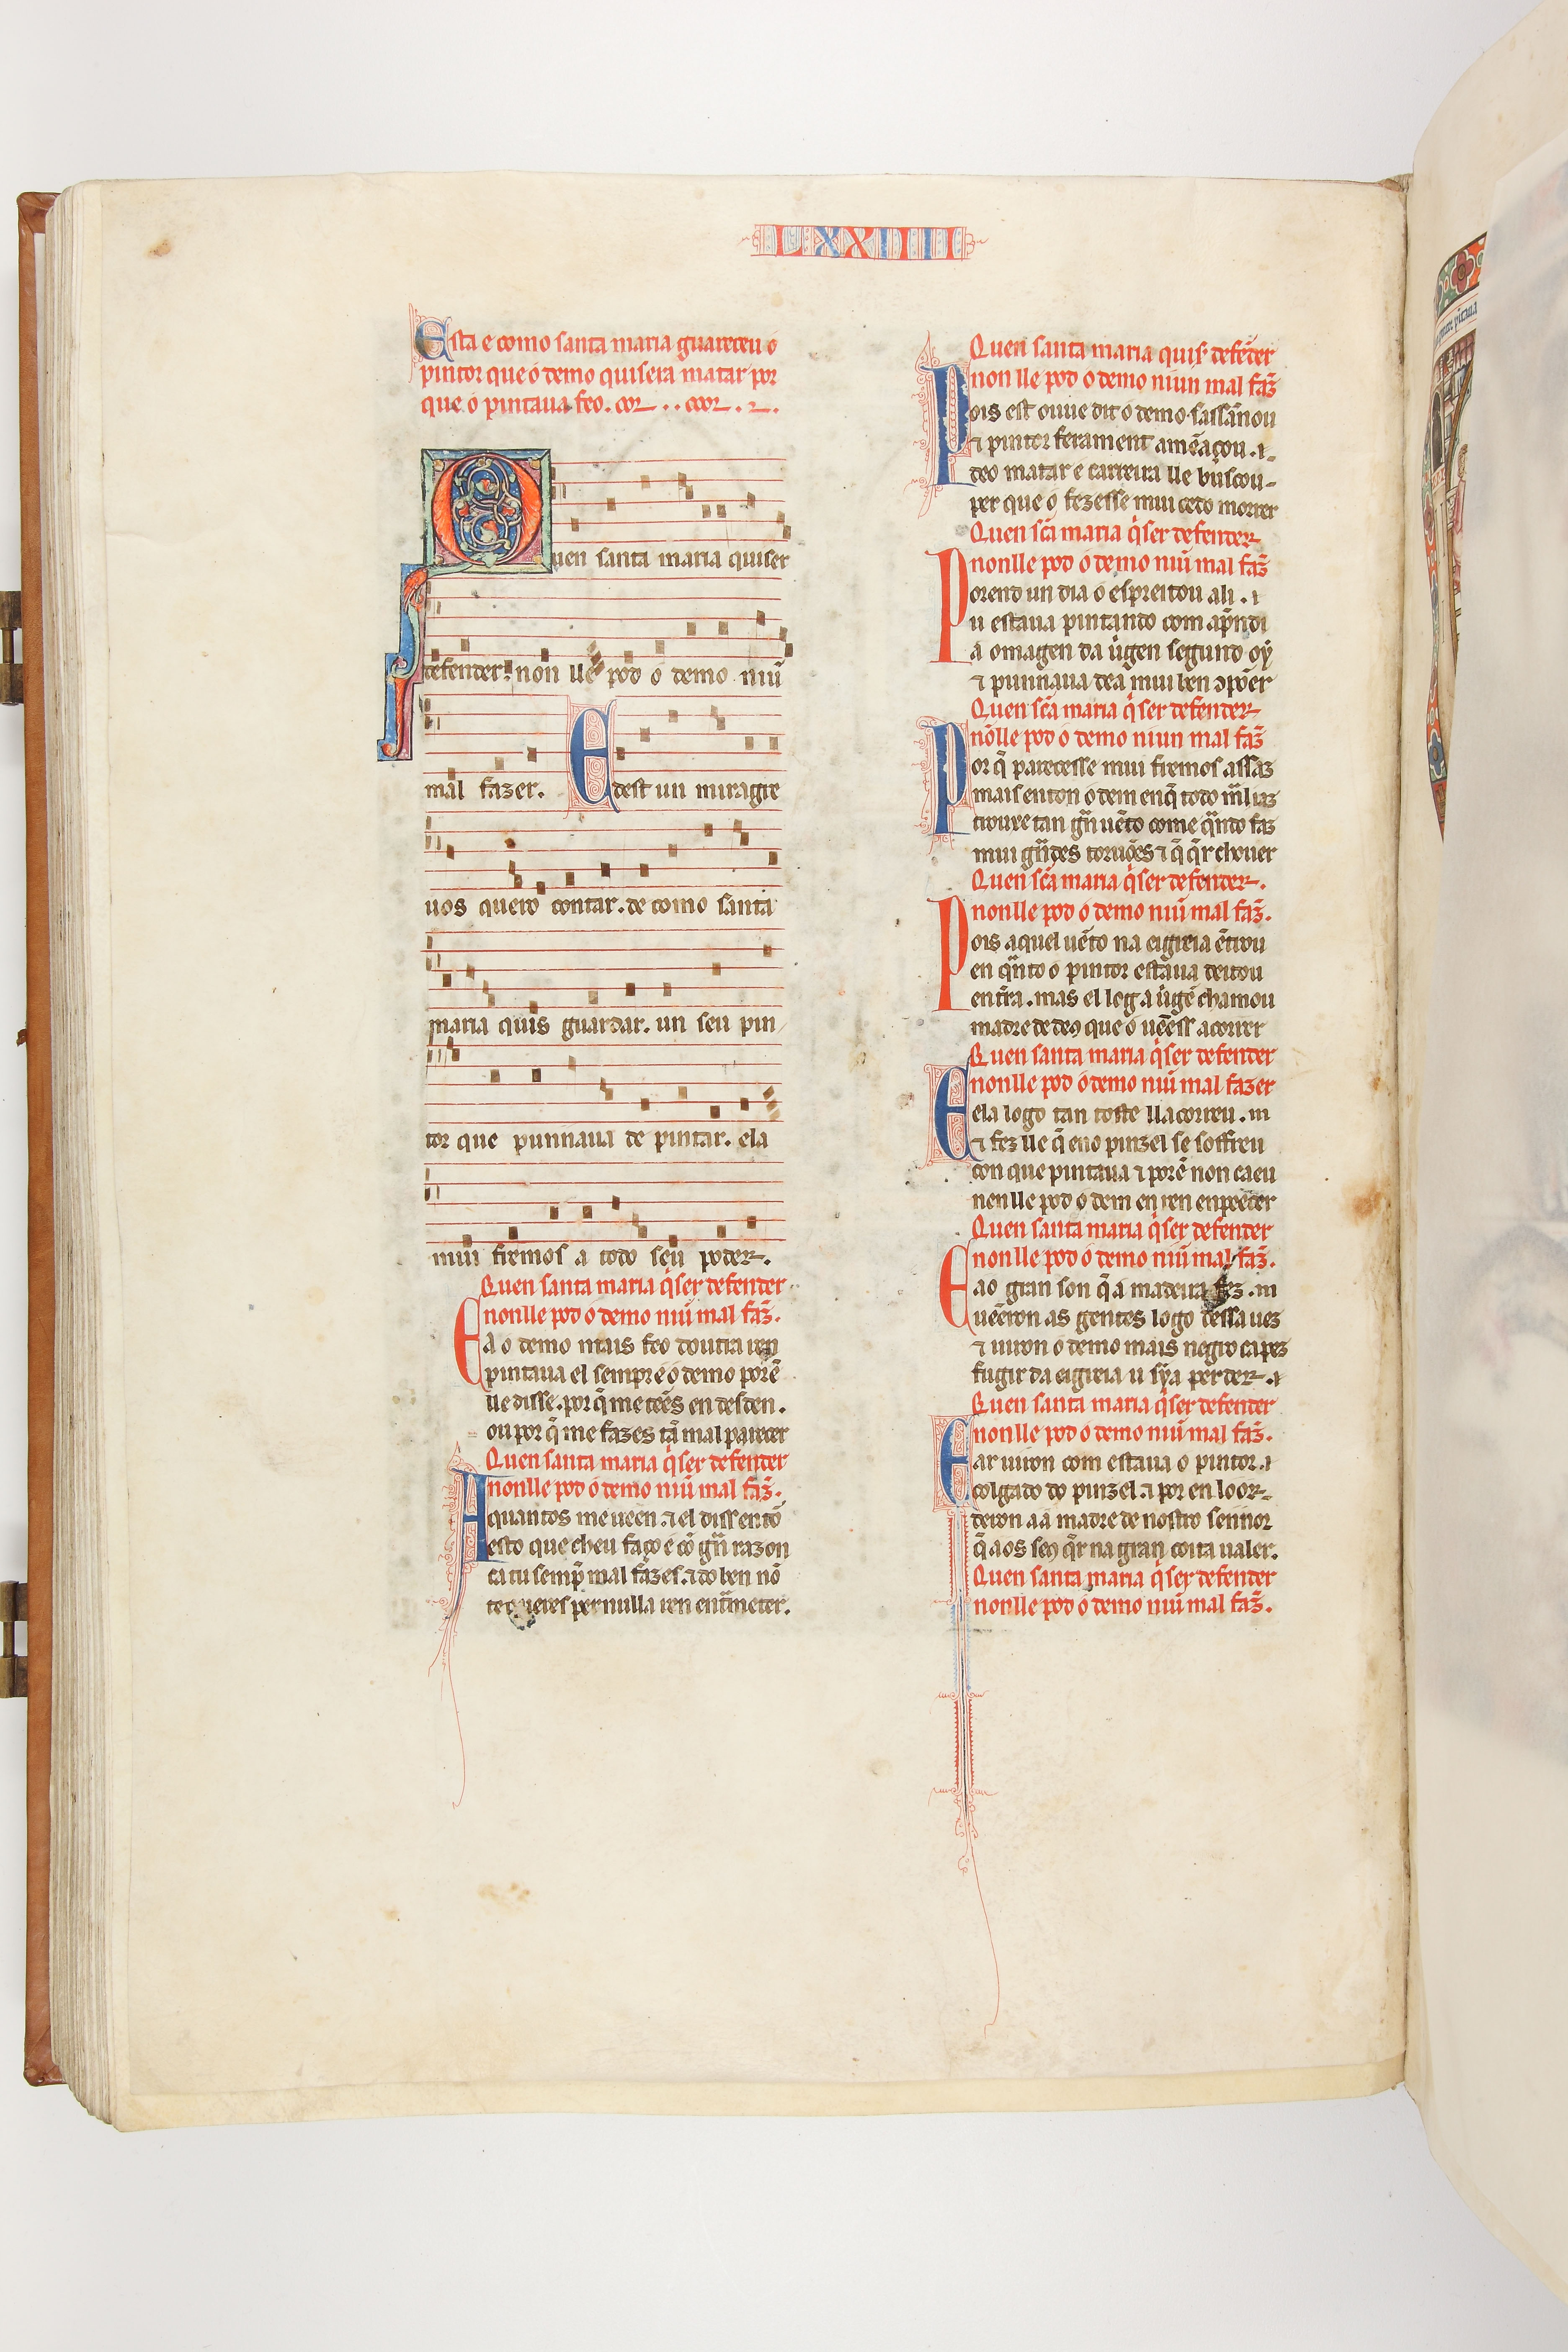 LXXIIII
Esta e como santa maria guareceu o
pintor que o demo quisera matar por
que o pintaua feo.
Quen santa maria quiser
defender. non lle pod o demo niũ
mal fazer. E dest un miragre
uos quero contar. de como santa
maria quis guardar. un seu pin
tor que punnaua de pintar. ela
mui fremos a todo seu poder.
Quen santa maria q̇ser defender
nonlle pod o demo niũ mal faz̃.
E a o demo mais feo doutra ren
pintaua el sempre ⁊ o demo porẽ
lle disse. por q̃ me tẽes en desden.
ou por q̃ me fazes tã mal parecer
Quen santa maria q̇ser defender
nonlle pod o demo niũ mal faz̃.
A quantos me ueen. ⁊ el diss entõ
esto que ch eu faço e cõ gñ razon
ca tu semp̃ mal fazes. ⁊ do ben nõ
te queres per nulla ren entm̃eter.
Quen santa maria quis̃ defẽder
non lle pod o demo niun mal faz̃
Pois est ouue dit o demo sassãnou
⁊ o pintor ferament amẽaçou. ⁊
deo matar e carreira lle buscou
per que o fezesse mui cedo morrer
Quen scã maria q̇ser defender
nonlle pod o demo niũ mal faz̃
Porend un dia o espreitou ali. ⁊
u estaua pintando com ap̃ndi
a omagen da uĩgen segund oý
⁊ punnaua dea mui ben ɔpõer
Quen scã maria q̇ser defender
nõlle pod o demo niun mal faz̃
Por q̃ parecesse mui fremos assaz
mais enton o dem en q̃ todo m̃l iaz
trouxe tan gñ uẽto come q̃ndo faz
mui gñdes toruões ⁊ q̃ q̇r chouer
Quen scã maria q̇ser defender.
nonlle pod o demo niũ mal faz̃.
Pois aquel uẽto na eigreia ẽtrou
en q̃nto o pintor estaua deitou
en tr̃a. mas el log a uĩgẽ chamou
madre de deꝯ que o uẽess acorrer
Quen santa maria q̇ser defender
nonlle pod o demo niũ mal fazer
E ela logo tan toste ll acorreu. m
⁊ fez lle q̃ eno pinzel se soffreu
con que pintaua ⁊ porẽ non caeu
nen lle pod o dem en ren enpẽecer
Quen santa maria q̇ser defender
nonlle pod o demo niũ mal faz̃.
E ao gran son q̃ a madeira fez. m
uẽeron as gentes logo dessa uez
⁊ uiron o demo mais negro ca pez
fugir da eigreia u sỹa perder. ⁊
Quen santa maria q̇ser defender
nonlle pod o demo niũ mal faz̃.
E ar uiron com estaua o pintor. ⁊
colgado do pinzel. ⁊ por en loor
deron aa madre de nostro sennor
q̃ aos seꝯ q̇r na gran coita ualer.
Quen santa maria q̇ser defender
nonlle pod o demo niũ mal faz̃.